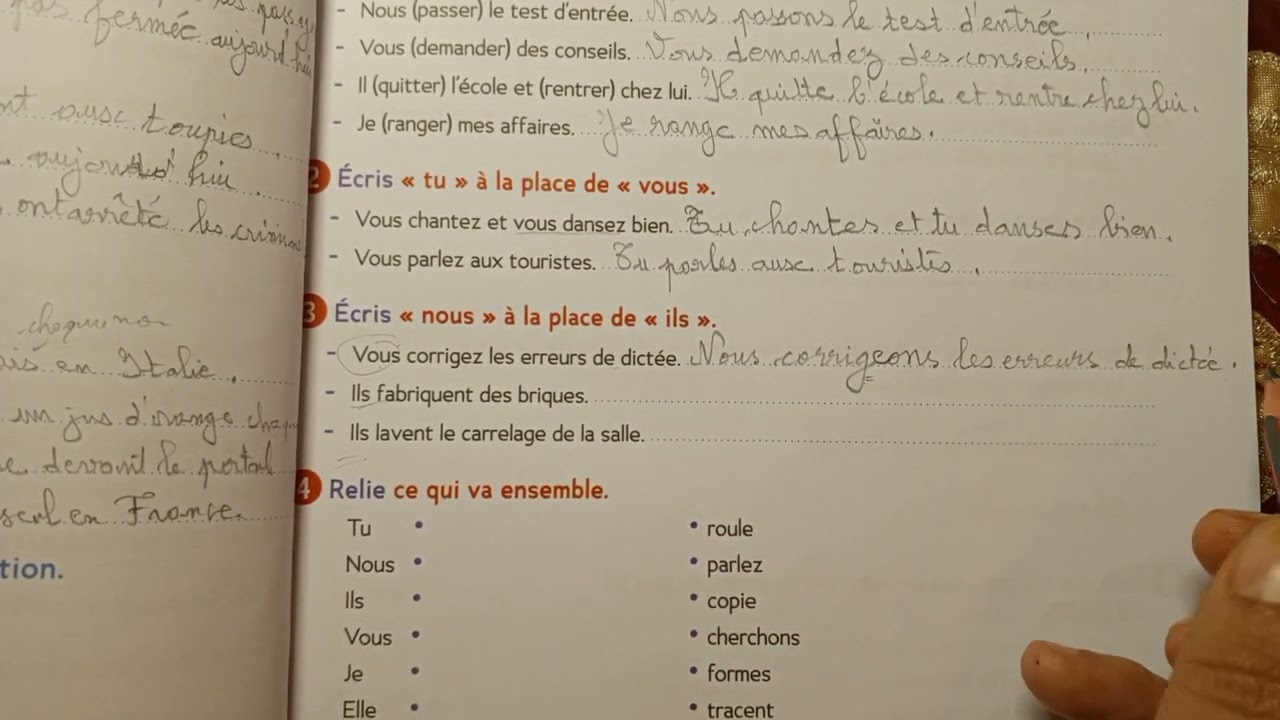 fermée aujourd'hui
- Nous (passer) le test d'entrée. Nous passons le test d'entrée.
- Vous (demander) des conseils. Vous demandez des conseils.
- Il (quitter) l'école et (rentrer) chez lui. Il quitte l'école et rentre chez lui.
- Je (ranger) mes affaires. Je range mes affaires.
toupies
aujourd'hui.
ont arrêté les
2 Écris « tu » à la place de « vous ».
- Vous chantez et vous dansez bien. Tu chantes et tu danses bien.
- Vous parlez aux touristes. Tu parles
3 Écris « nous » à la place de « ils ».
en Italie.
- Vous corrigez les erreurs de dictée. Nous corrigeons les erreurs de dictée.
- Ils fabriquent des briques.
un jus d'orange
- Ils lavent le carrelage de la salle.
le portail
4 Relie ce qui va ensemble.
seul en France.
Tu • • roule
Nous • • parlez
tion.
Ils • • copie
Vous • • cherchons
Je • • formes
Elle • • tracent